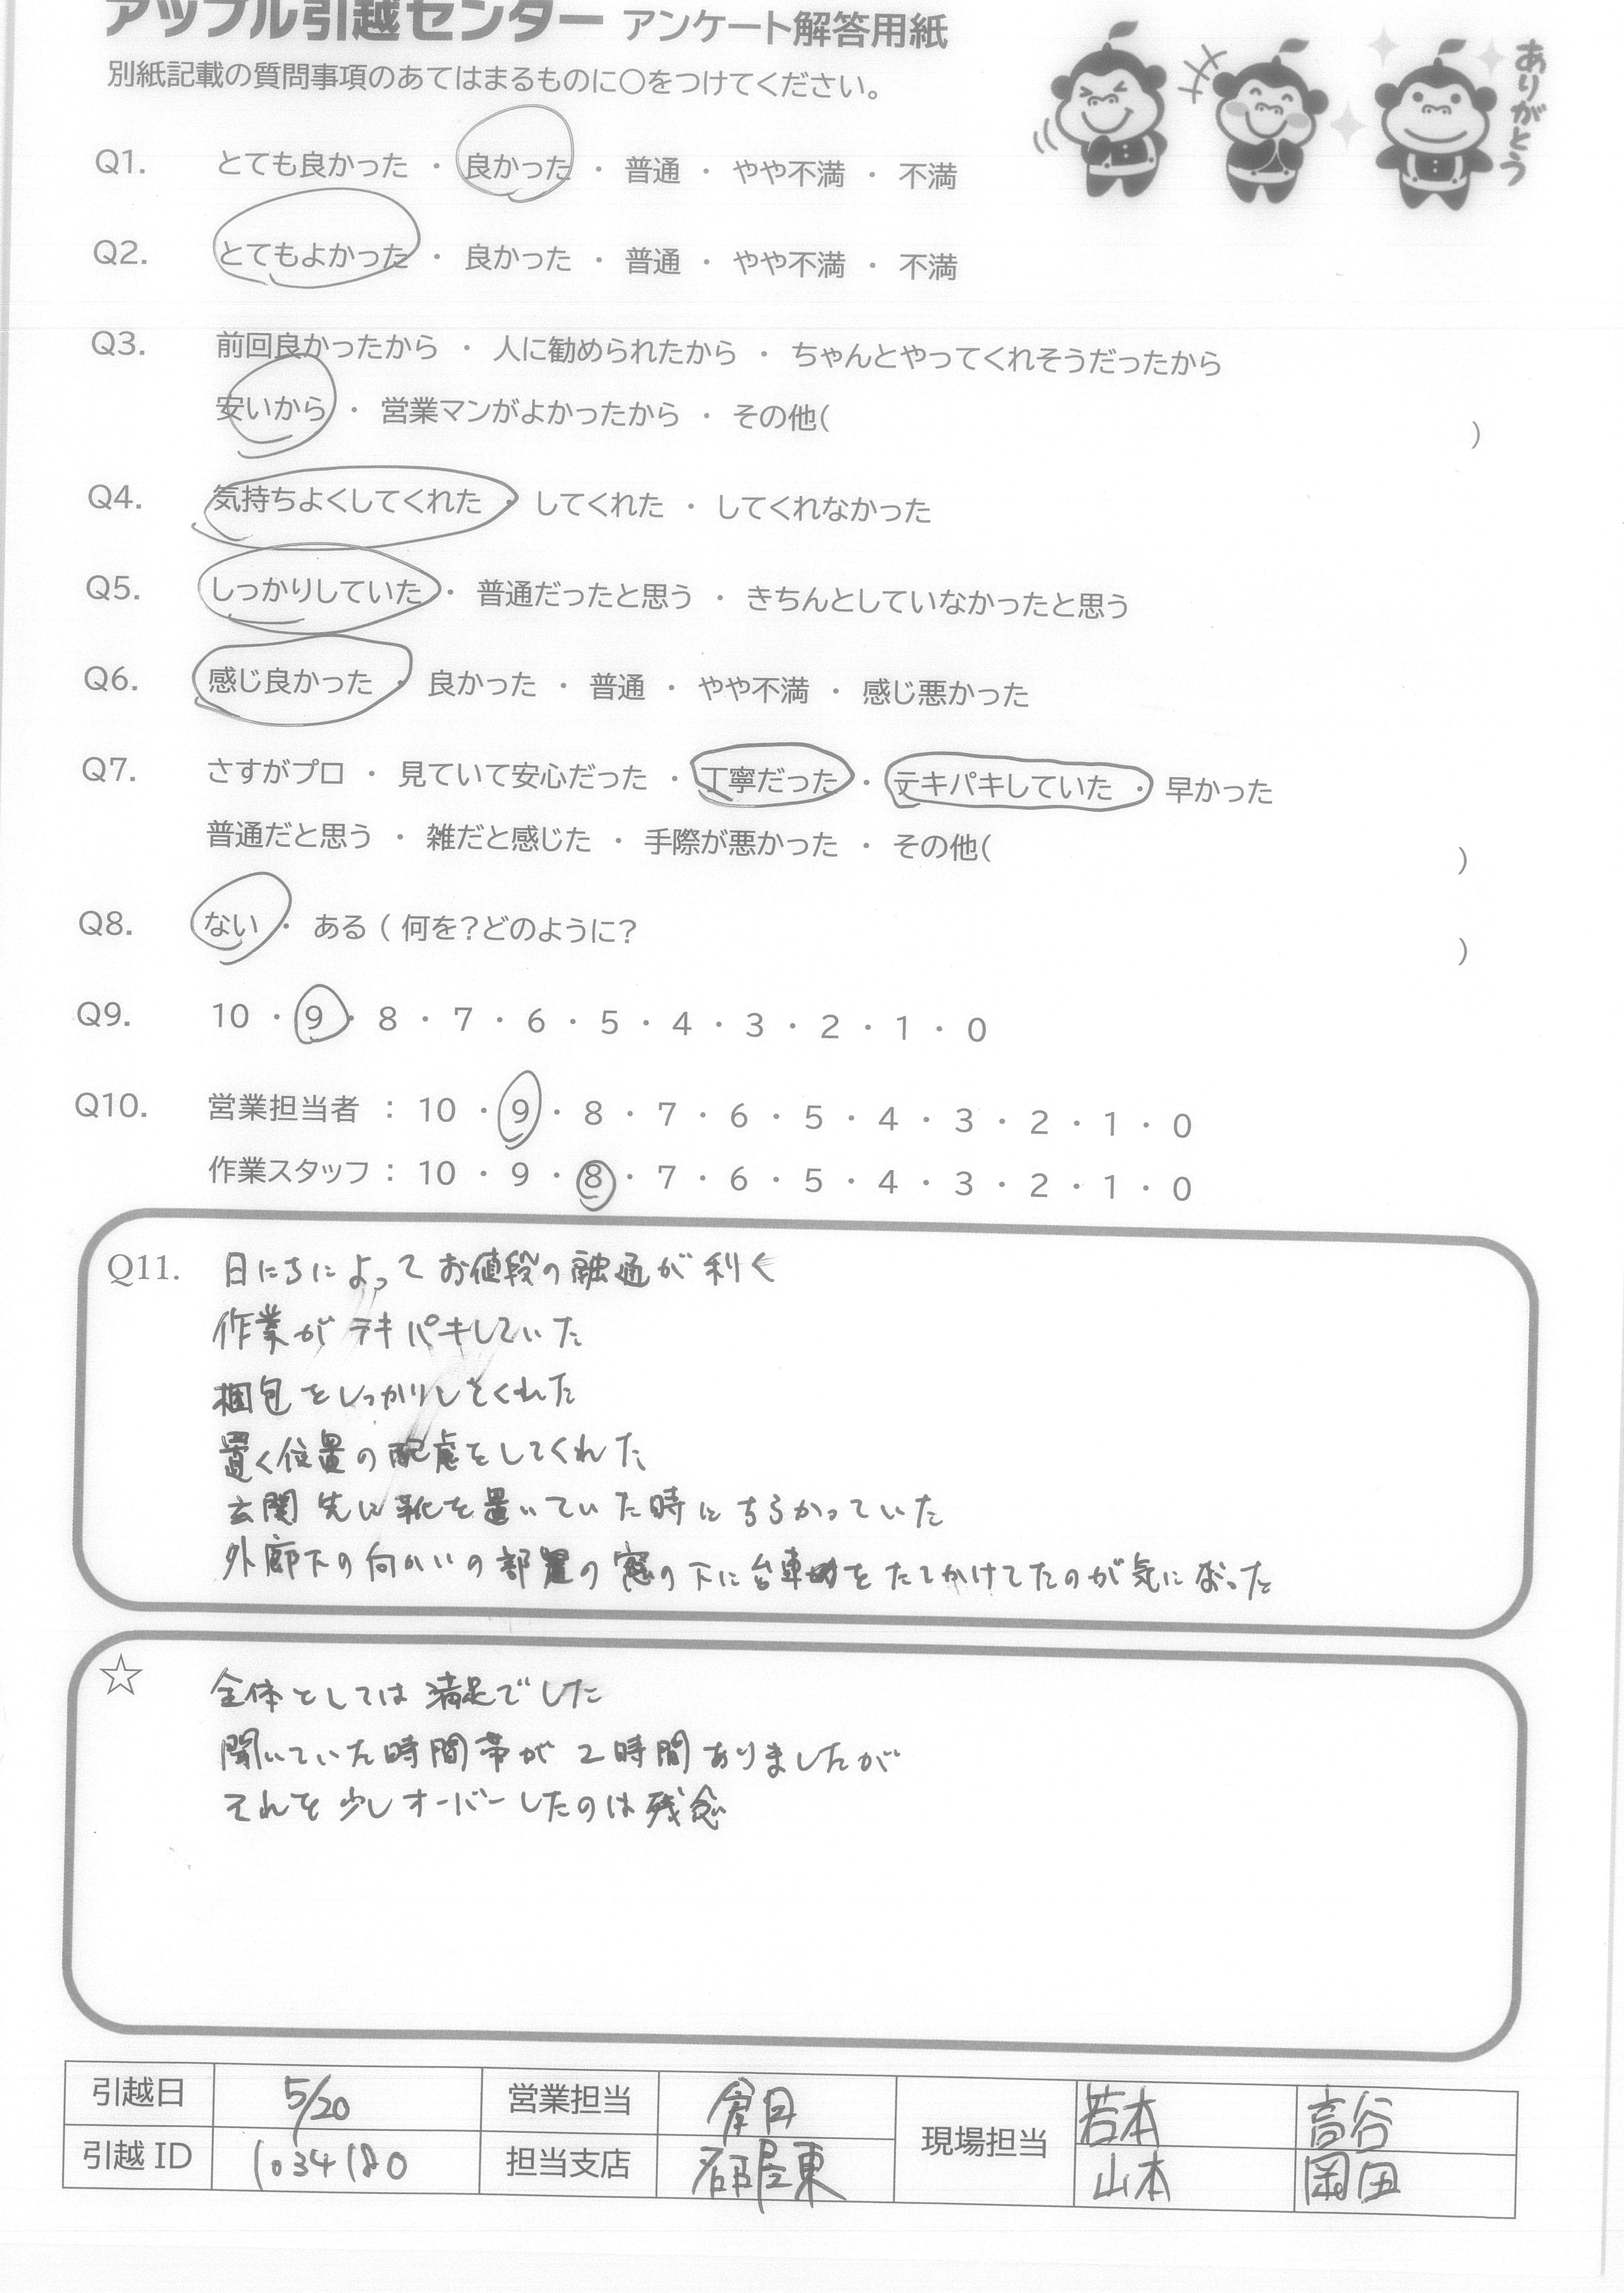 アップル引越センター アンケート解答用紙
別紙記載の質問事項のあてはまるものに〇をつけてください。
ありがとう
Q1. とても良かった ・ 良かった ・ 普通 ・ やや不満 ・ 不満
Q2. とてもよかった ・ 良かった ・ 普通 ・ やや不満 ・ 不満
Q3. 前回良かったから ・ 人に勧められたから ・ ちゃんとやってくれそうだったから
安いから ・ 営業マンがよかったから ・ その他( )
Q4. 気持ちよくしてくれた ・ してくれた ・ してくれなかった
Q5. しっかりしていた ・ 普通だったと思う ・ きちんとしていなかったと思う
Q6. 感じ良かった ・ 良かった ・ 普通 ・ やや不満 ・ 感じ悪かった
Q7. さすがプロ ・ 見ていて安心だった ・ 丁寧だった ・ テキパキしていた ・ 早かった
普通だと思う ・ 雑だと感じた ・ 手際が悪かった ・ その他( )
Q8. ない ・ ある ( 何を？どのように？ )
Q9. 10 ・ 9 ・ 8 ・ 7 ・ 6 ・ 5 ・ 4 ・ 3 ・ 2 ・ 1 ・ 0
Q10. 営業担当者 : 10 ・ 9 ・ 8 ・ 7 ・ 6 ・ 5 ・ 4 ・ 3 ・ 2 ・ 1 ・ 0
作業スタッフ : 10 ・ 9 ・ 8 ・ 7 ・ 6 ・ 5 ・ 4 ・ 3 ・ 2 ・ 1 ・ 0
Q11. 日にちによってお値段の融通が利く
作業がテキパキしていた
梱包をしっかりしてくれた
置く位置の配慮をしてくれた
玄関先に靴を置いていた時にちらかっていた
外廊下の向かいの部屋の窓の下に台車をたてかけてたのが気になった
☆ 全体としては満足でした
聞いていた時間帯が2時間ありましたが
それを少しオーバーしたのは残念
引越日 5/20 営業担当 現場担当 若本 高谷
引越ID 1034180 担当支店 名古屋東 山本 岡田